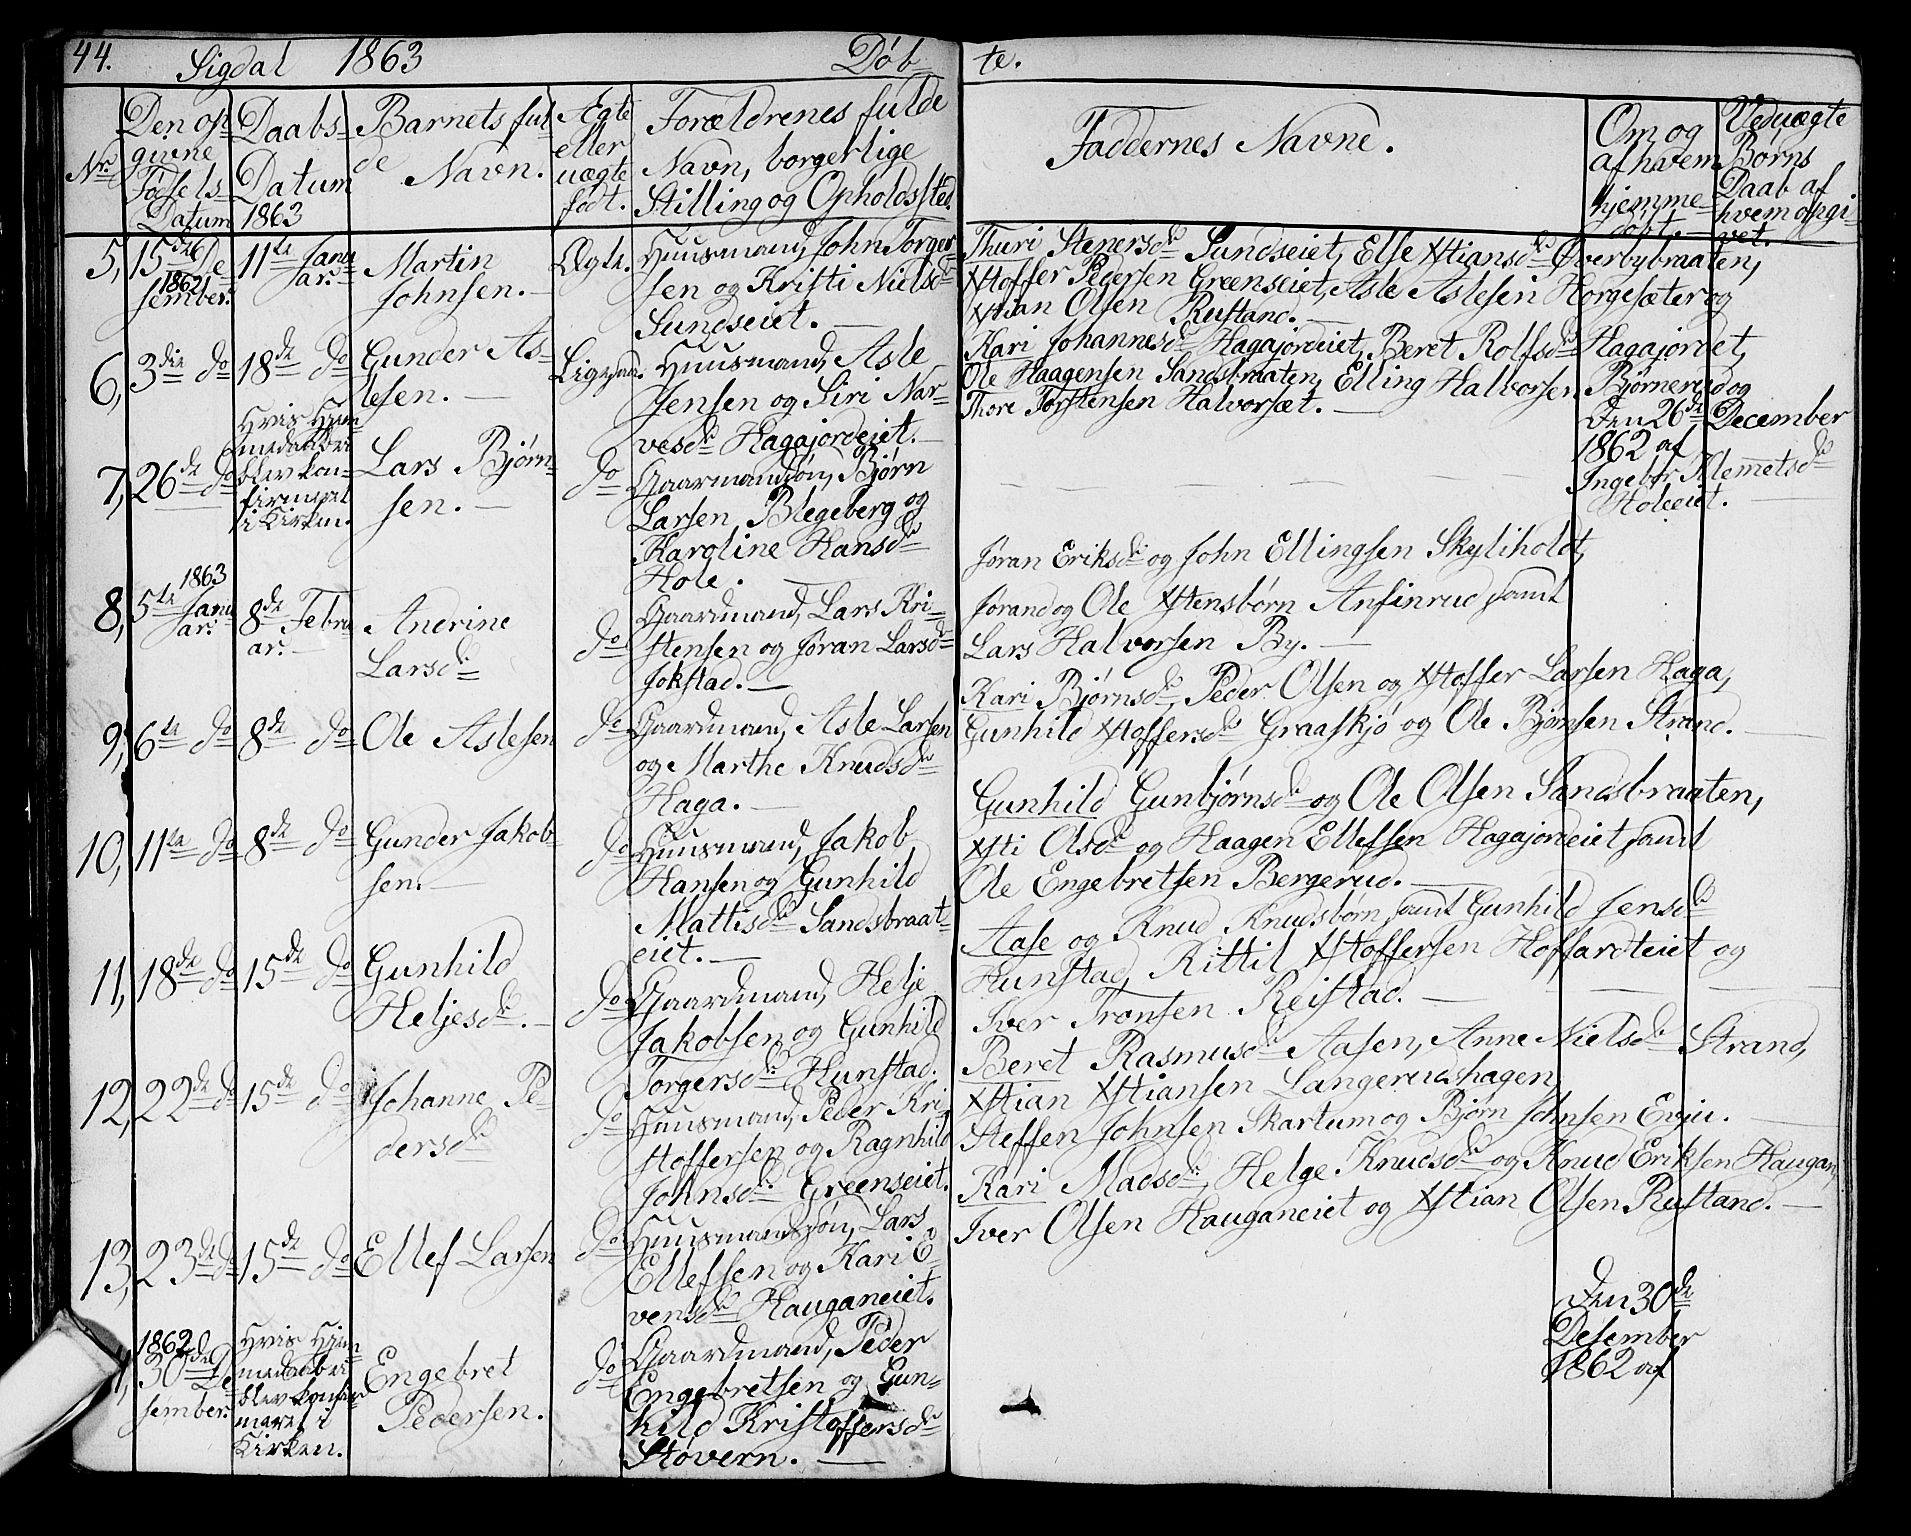 44. Sigdal 1863 Døb- te.
Nr. Den op- givne Fødsels- Datum
Daabs- Datum 1863
Barnets ful- de Navn.
Ægte eller uægte født.
Forældrenes fulde Navn, borgerlige Stilling og Opholdssted.
Faddernes Navne.
Om og af hvem hjemme- døbt.
Ved uægte Børns Daab af hvem opgi- vet.
5, 15de De- 1862 sember.
11te Janu- ar.
Martin Johnsen.
Ægte.
Huusmand, John Torger-
sen og Kristi Nielsdr
Sundseiet.
Thuri Stenersdr Sundseiet, Else Xstiansdr Øverbybraaten,
Xstoffer Pedersen Greenseiet, Asle Aslesen Horgesæter og
Xstian Olsen Rustand.
6, 3die do
18de do
Gunder As-
lesen.
Ligesaa.
Huusmand, Asle
Jensen og Siri Nar-
vesdr Hagajordeiet.
Kari Johannesdr Hagajordeiet, Beret Rolfsdr Hagajordet,
Ole Haagensen Sandsbraaten, Elling Halvorsen Bjørnerud og
Thore Torstensen Halvorsæt.
7, 26de do
Hvis Hjem-
medaab
blev kon-
firmeret
i Kirken.
Lars Bjørn-
sen.
do
Gaarmandsøn, Bjørn
Larsen Blegeberg og
Karoline Hansdr
Hole.
Den 26de December
1862 af
Ingebr Klemetsdr
Holeeiet.
8, 5te 1863 Janu- ar.
8de Febru-
ar.
Andrine
Larsdr
do
Gaardmand, Lars Kri-
stensen og Jøran Larsdr
Jokstad.
Jøran Eriksdr og John Ellingsen Skyliholdt,
Jørand og Ole Xstensbørn Anfinrud samt
Lars Halvorsen By.
9, 6te do
8de do
Ole Aslesen
do
Gaardmand, Asle Larsen
og Marthe Knudsdr
Haga.
Kari Bjørnsdr, Peder Olsen og Xstoffer Larsen Haga,
Gunhild Xstoffersdr Graaskjø og Ole Bjørnsen Strand.
10, 11te do
8de do
Gunder Jakob-
sen.
do
Huusmand, Jakob
Hansen og Gunhild
Mattisdr Sandsbraat-
eiet.
Gunhild Gunbjørnsdr og Ole Olsen Sandsbraaten,
Xsti Olsdr og Haagen Ellefsen Hagajordeiet samt
Ole Engebretsen Bergerud.
11, 18de do
15de do
Gunhild
Heljesdr.
do
Gaardmand, Helje
Jakobsen og Gunhild
Torgersdr Hunstad.
Aase og Knud Knudsbørn samt Gunhild Jensdr
Hunstad, Kittil Xstoffersen Hoffardteiet og
Iver Tronsen Reistad.
12, 22de do
15de do
Johanne Pe-
dersdr
do
Huusmand, Peder Kri-
stoffersen og Ragnhild
Johnsdr Greenseiet.
Beret Rasmusdr Aasen, Anne Nielsdr Strand,
Xstian Xstiansen Langerudshagen,
Steffen Johnsen Skartum og Bjørn Johnsen Evju.
13, 23de do
15de do
Ellef Larsen
do
Huusmandsøn, Lars
Ellefsen og Kari E-
vensdr Hauganeiet.
Kari Madsdr, Helge Knudsdr og Knud Eriksen Haugan,
Iver Olsen Hauganeiet og Xstian Olsen Rustand.
1862 30de De-
sember.
Hvis Hjem-
medaab
blev konfir-
meret i
Kirken.
Engebret
Pedersen.
do
Gaardmand, Peder
Engebretsen og Gun-
hild Kristoffersdr
Støvern.
Den 30de
Desember
1862 af